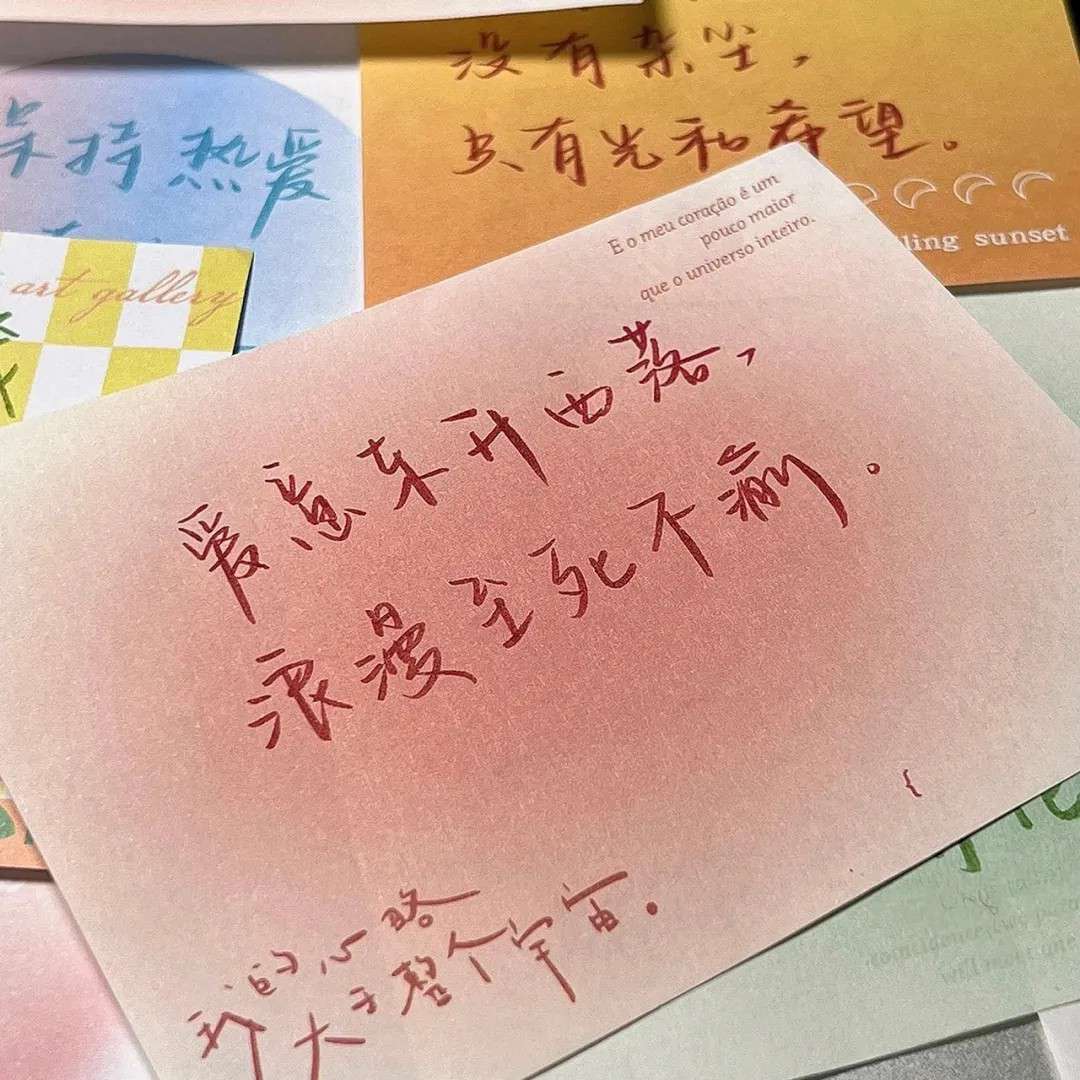 没有杂尘，
只有光和希望。
ling sunset
保持热爱
art gallery
E o meu coração é um
pouco maior
que o universo inteiro.
爱意东升西落，
浪漫至死不渝.
我的心略
大于整个宇宙。